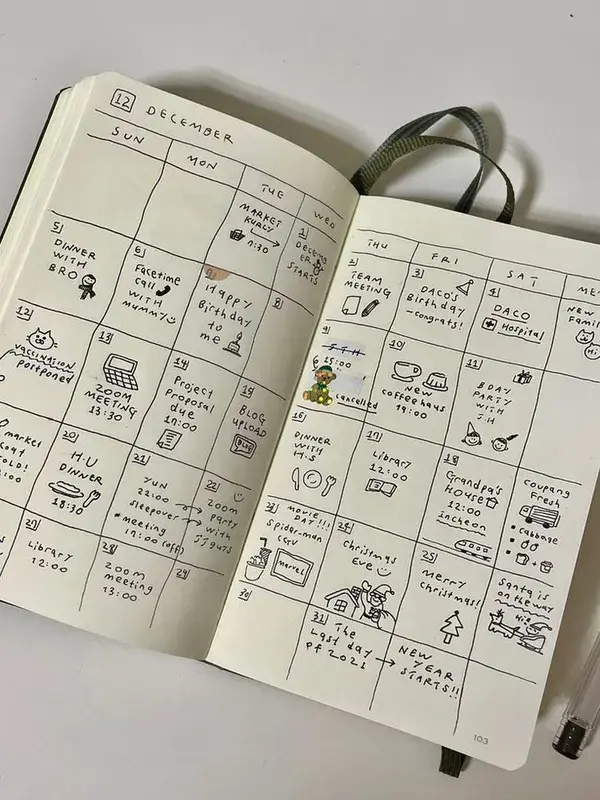 12 DECEMBER
SUN
MON
TUE
WED
MARKET
KURLY
7:30
1
DECEMB
ER
STARTS
5
DINNER
WITH
BRO
6
Facetime
call
WITH
MUMMY
7
Happy
Birthday
to
me
8
12
VACCINATION
postponed
13
ZOOM
MEETING
13:30
14
Project
Proposal
due
17:00
15
BLOG
UPLOAD
BLOG
market
20
H.U
DINNER
18:30
21
YUN
22:00
sleepover
* meeting
17:00 (off)
22
ZOOM
party
with
JJ guys
27
Library
12:00
28
ZOOM
meeting
13:00
29
THU
FRI
SAT
2
TEAM
MEETING
3
DACO'S
Birthday
~congrats!
4
DACO
+ Hospital
NEW
Family
Hi
9
J.H
15:00
cancelled
10
NEW
coffee haus
19:00
11
BDAY
PARTY
WITH
J.H
16
DINNER
WITH
H.S
17
Library
12:00
18
Grandpa's
HOUSE
12:00
Incheon
COUPANG
Fresh
cabbage
23
MOVIE
DAY!!!
Spider-man
CGV
MARVEL
24
Christmas
Eve
25
Merry
Christmas!
Santa is
on the way
30
31
The
Last day
of 2021
NEW
YEAR
STARTS!!
103